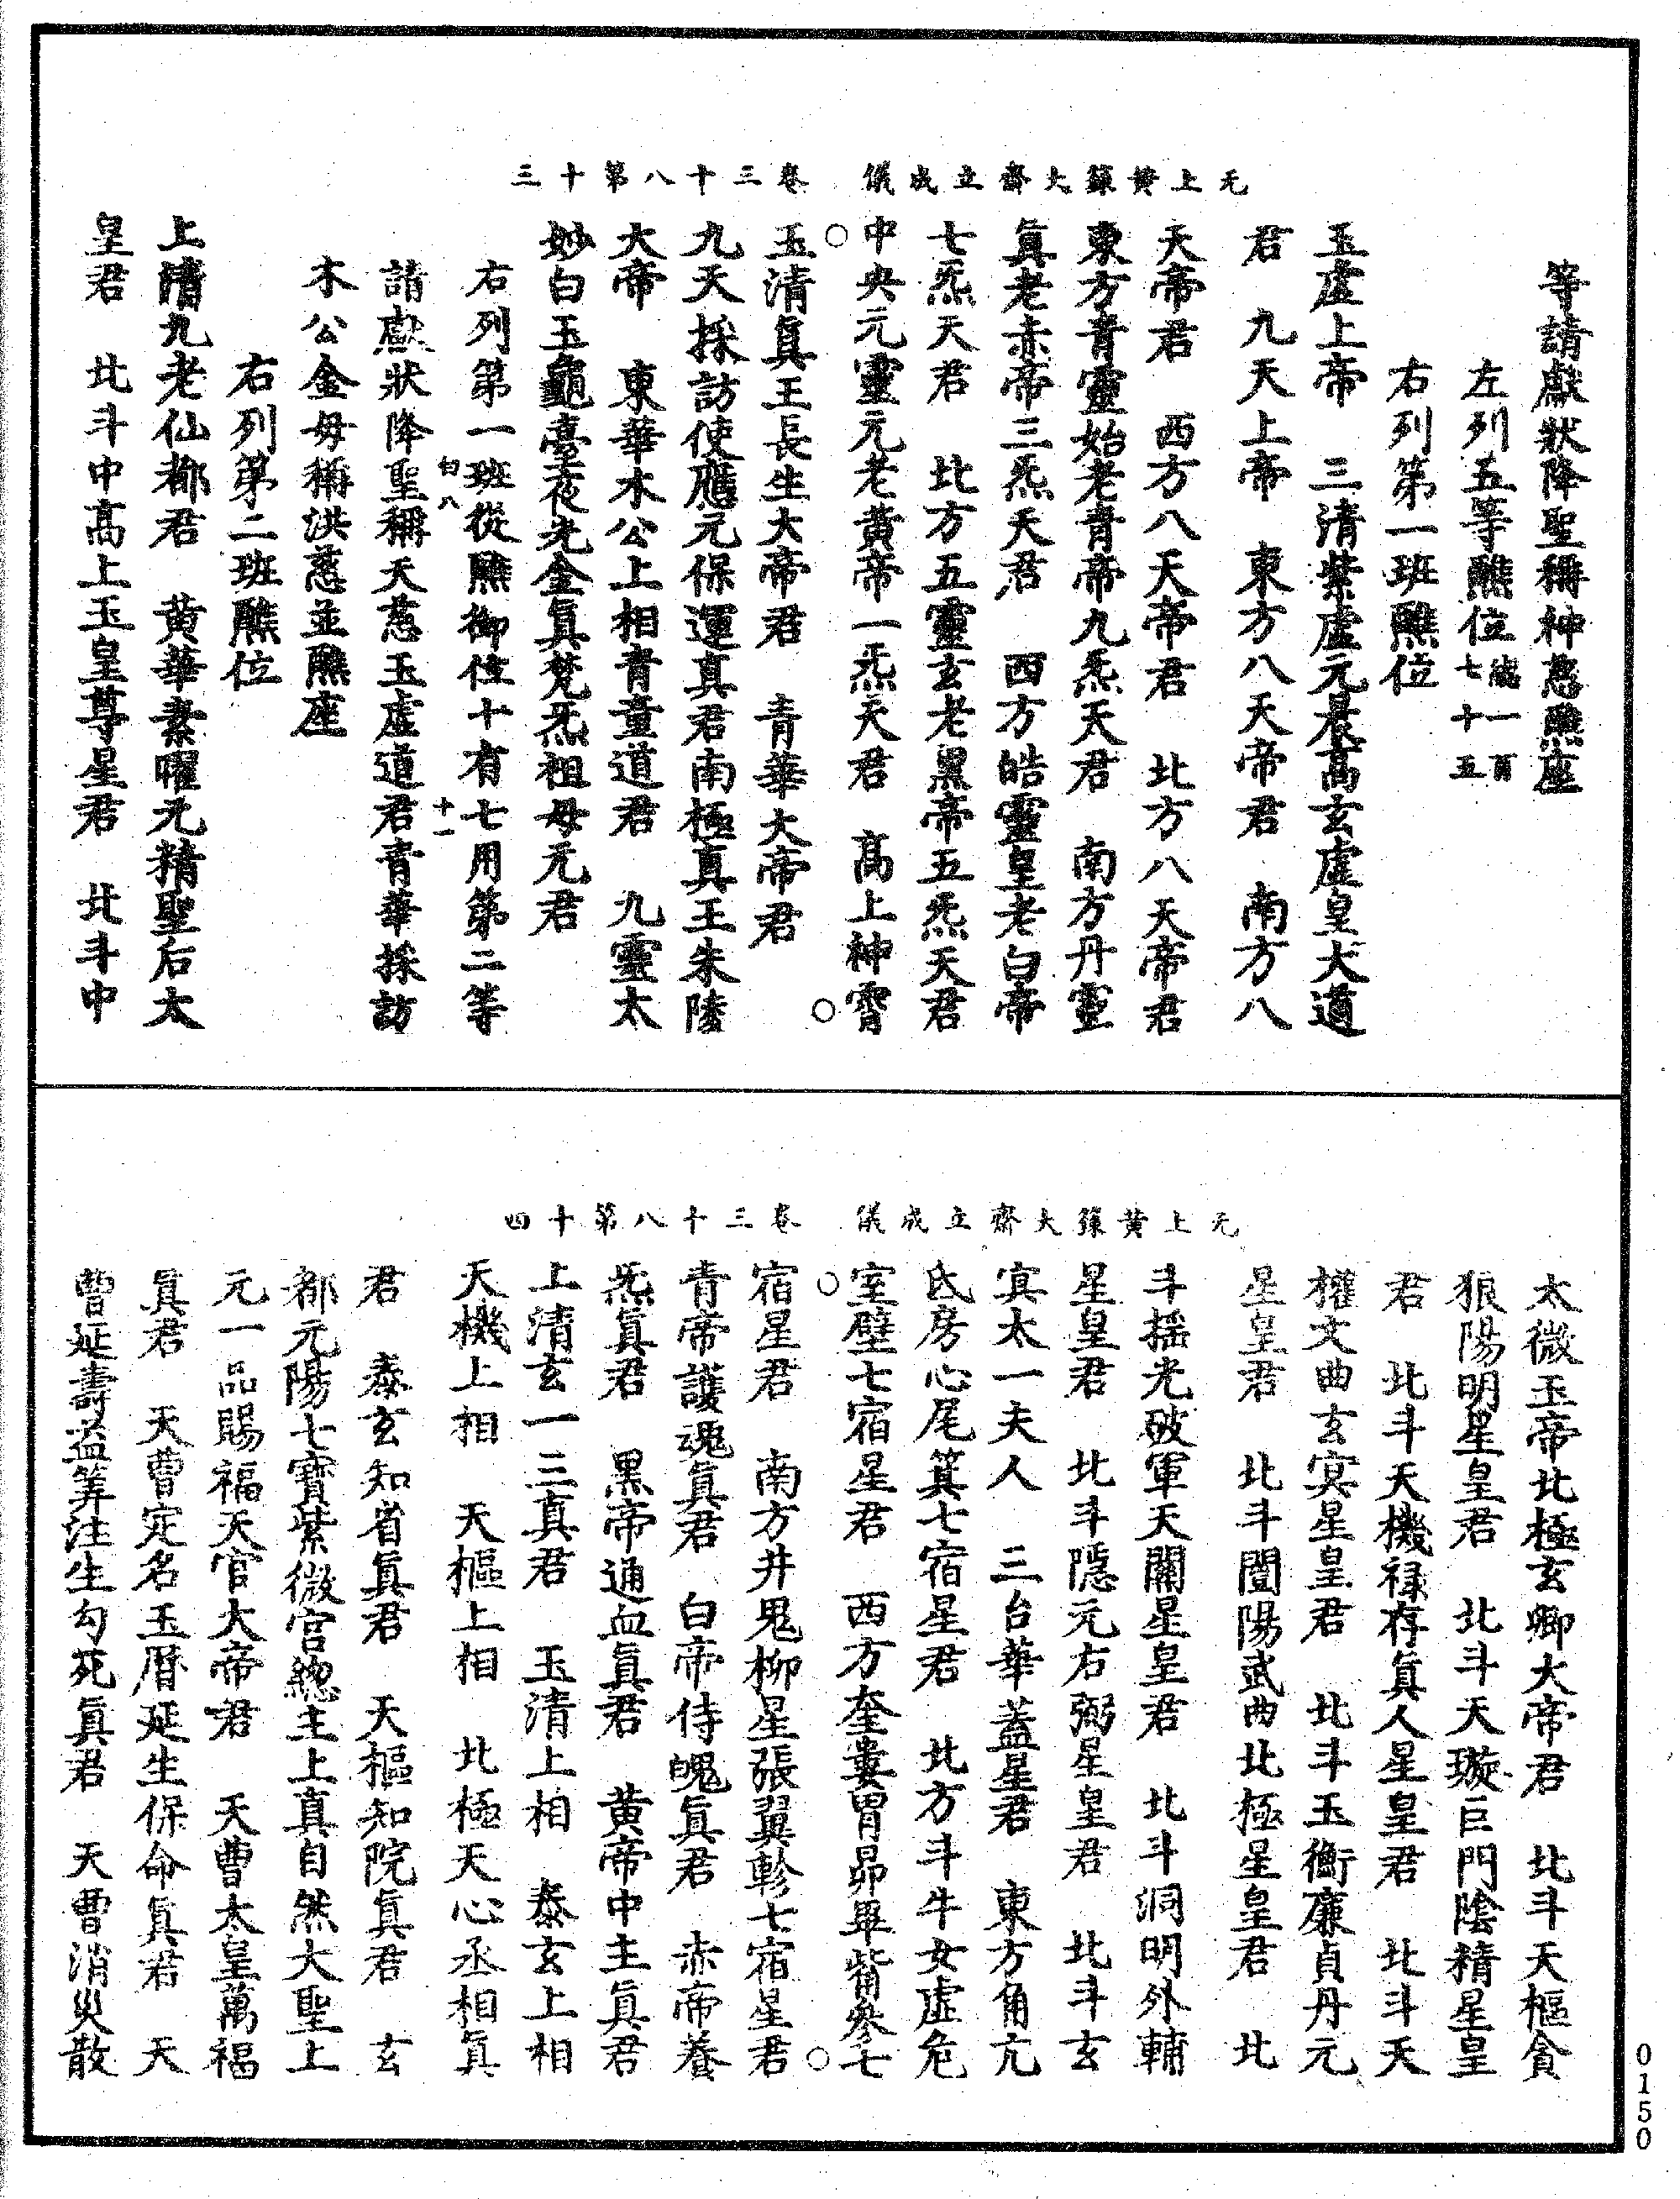 无上黃籙大齋立成儀 卷三十八第十三
等請獻狀降聖稱神慈醮座
左列五等醮位總一百七十五
右列第一班醮位
玉虛上帝 三清紫虛元晨高玄虛皇大道
君 九天上帝 東方八天帝君 南方八
天帝君 西方八天帝君 北方八天帝君
東方青靈始老青帝九炁天君 南方丹靈
眞老赤帝三炁天君 西方皓靈皇老白帝
七炁天君 北方五靈玄老黑帝五炁天君
中央元靈元老黃帝一炁天君 高上神霄
玉清眞王長生大帝君 青華大帝君
九天採訪使應元保運真君南極真王朱陵
大帝 東華木公上相青童道君 九靈太
妙白玉龜臺夜光金眞梵炁祖母元君
右列第一班從醮御位十有七用第二等
白八 十一
請獻狀降聖稱天慈玉虛道君青華採訪
木公金母稱洪慈並醮座
右列第二班醮位
上清九老仙都君 黃華素曜元精聖后太
皇君 北斗中高上玉皇尊星君 北斗中
无上黃籙大齋立成儀 卷三十八第十四
太微玉帝北極玄卿大帝君 北斗天樞貪
狼陽明星皇君 北斗天璇巨門陰精星皇
君 北斗天機祿存眞人星皇君 北斗天
權文曲玄冥星皇君 北斗玉衡廉貞丹元
星皇君 北斗闓陽武曲北極星皇君 北
斗搖光破軍天關星皇君 北斗洞明外輔
星皇君 北斗隱元右弼星皇君 北斗玄
冥太一夫人 三台華蓋星君 東方角亢
氐房心尾箕七宿星君 北方斗牛女虛危
室壁七宿星君 西方奎婁胃昴畢觜參七
宿星君 南方井鬼柳星張翼軫七宿星君
青帝護魂眞君 白帝侍魄眞君 赤帝養
炁眞君 黑帝通血眞君 黃帝中主眞君
上清玄一三真君 玉清上相 泰玄上相
天機上相 天樞上相 北極天心丞相眞
君 泰玄知省眞君 天樞知院眞君 玄
都元陽七寶紫微宮總主上真自然大聖上
元一品賜福天官大帝君 天曹太皇萬福
眞君 天曹定名玉曆延生保命眞君 天
曹延壽益筭注生勾死眞君 天曹消災散
0150